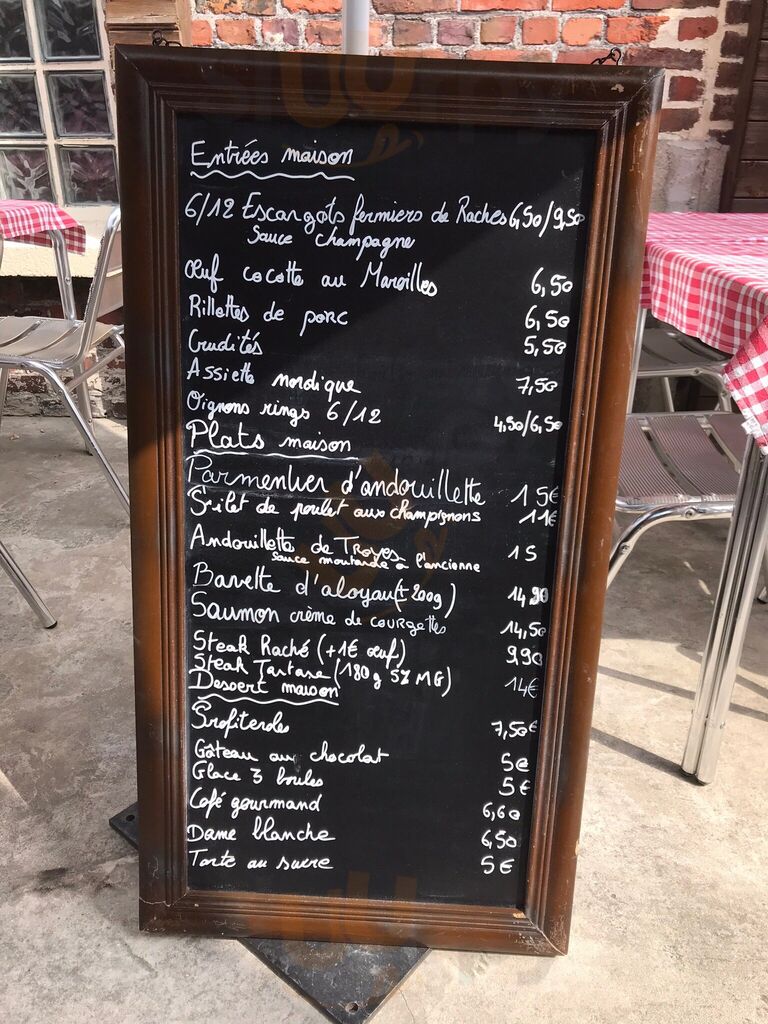 Entrées maison
6/12 Escargots fermiers de Raches 6,50/9,50
Sauce champagne
œuf cocotte au Maroilles 6,50
Rillettes de porc 6,50
Crudités 5,50
Assiette nordique 7,50
Oignons rings 6/12 4,50/6,50
Plats maison
Parmentier d'andouillette 15€
Filet de poulet aux champignons 11€
Andouillette de Troyes 15
sauce moutarde à l'ancienne
Bavette d'aloyau (± 200g) 14,90
Saumon crème de courgettes 14,50
Steak Haché (+1€ œuf) 9,90
Steak Tartare (180g 5% MG) 14€
Dessert maison
Profiterols 7,50€
Gâteau au chocolat 5€
Glace 3 boules 5€
Café gourmand 6,60
Dame blanche 6,50
Tarte au sucre 5€